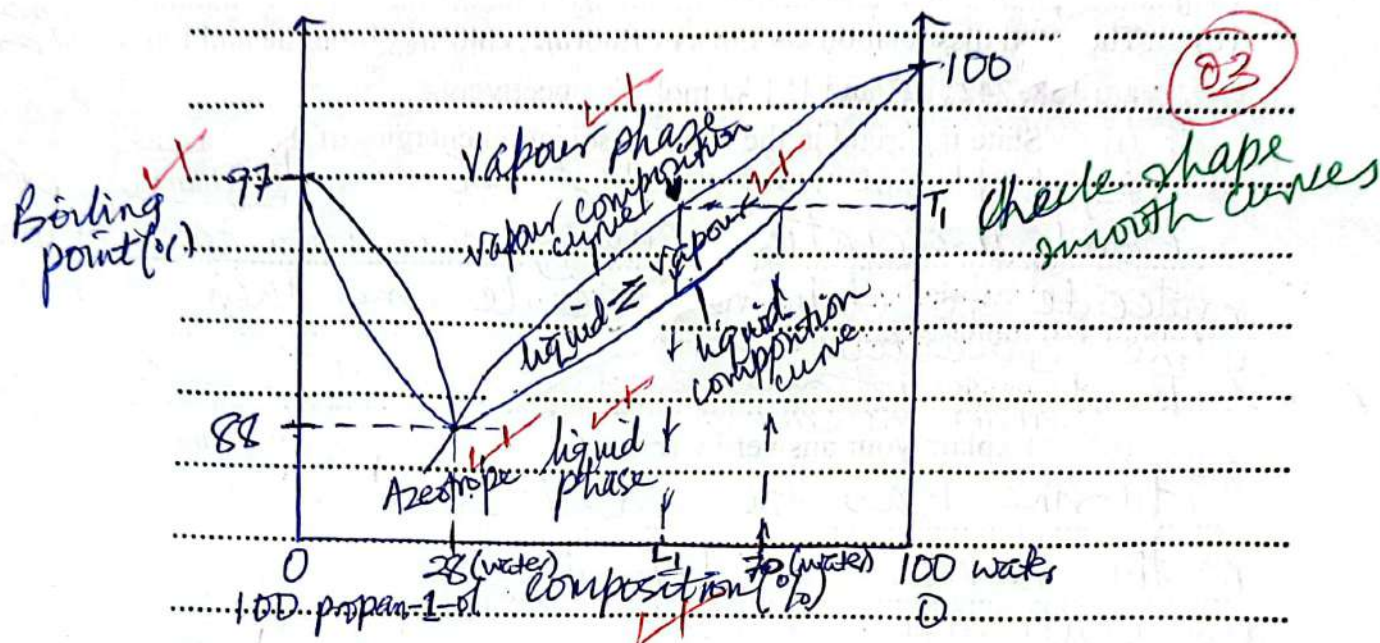 100
03
Vapour phase
97
Boiling
point (°C)
vapour composition
curve
liquid ⇌ vapour
T₁
Check shape
smooth curves
liquid
composition
curve
88
Azeotrope
liquid
phase
0
28 (water)
L₁
70 (water)
100 water
100 propan-1-ol
composition (%)
0